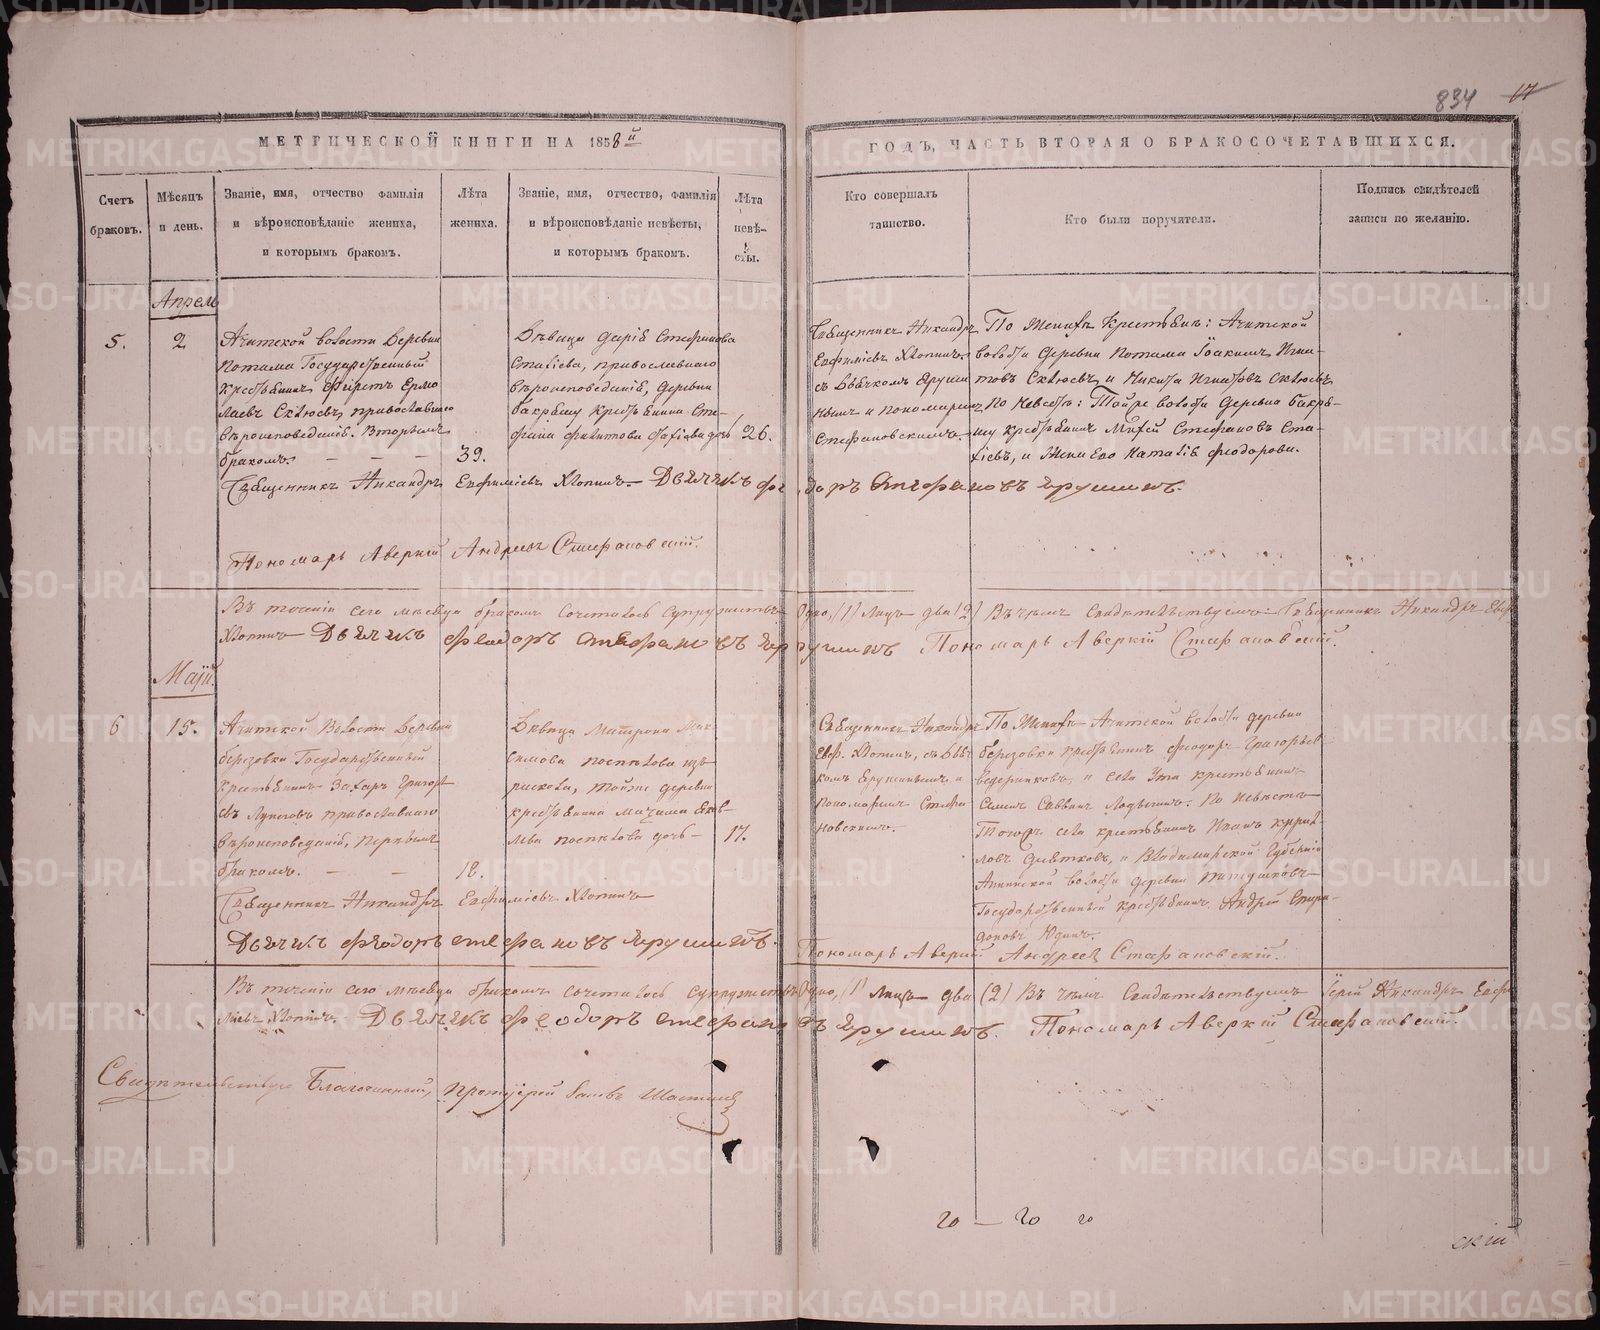 834 17
МЕТРИЧЕСКОЙ КНИГИ НА 1858й
ГОДЪ, ЧАСТЬ ВТОРАЯ О БРАКОСОЧЕТАВШИХСЯ.
Счетъ браковъ.
Мѣсяцъ и день.
Званіе, имя, отчество фамилія
и вѣроисповѣданіе жениха,
и которымъ бракомъ.
Лѣта жениха.
Званіе, имя, отчество, фамилія
и вѣроисповѣданіе невѣсты,
и которымъ бракомъ.
Лѣта невѣ-
сты.
Кто совершалъ
таинство.
Кто были поручители.
Подпись свидѣтелей
записи по желанію.
Апрель
5.
2
Ачитской волости Деревни
Потама Государственный
Крестьянинъ Ермо
лаевъ православнаго
вѣроисповеданія. Вторымъ
бракомъ. — — —
39.
Дѣвица Дарія Стефанова
православнаго
вѣроисповеданія, Деревни
крестьянина Сте-
фана дочь
26.
Священникъ Никандръ
Евфиміевъ Хлопинъ
съ Дьячкомъ Еруши
нымъ и пономаремъ
Стефановскимъ.
По Женихѣ Крестьяне: Ачитской
волости Деревни Потама Іоакимъ Игна-
товъ и Никита Игнатовъ
По Невестѣ: Тойже волости Деревни
крестьянинъ Стефановъ
и Жена Его Наталія Феодорова.
Священникъ Никандръ Евфиміевъ Хлопинъ — Дьячекъ Феодоръ Стефановъ Ерушинъ.
Пономарь Аверкій Андреевъ Стефановскій.
Въ теченіи сего мѣсяца бракомъ сочеталось Супружество Одно, /1/ Лицъ два /2/ Въ чемъ Свидѣтельствуемъ: Священникъ Никандръ Евф.
Хлопинъ Дьячекъ Феодоръ Стефановъ Ерушинъ Пономарь Аверкій Стефановскій.
Маій.
6
15.
Ачитской Волости Деревни
березовки Государственный
Крестьянинъ Захаръ Григорь
евъ православнаго
вѣроисповеданія, Первымъ
бракомъ. — —
18.
Дѣвица Матрона Мак
симова
тойже деревни
крестьянина Максима Яков-
лева дочь —
17.
Священникъ Никандръ
Евф. Хлопинъ, съ Дьяч
комъ Ерушинымъ и
пономаремъ Стефа
новскимъ.
По Женихѣ Ачитской волости деревни
березовки крестьянинъ Феодоръ Григорьев
Ведерниковъ, и села Ута крестьянинъ
Саввинъ По невѣстѣ
Тогожъ села крестьянинъ Иванъ Кирил-
ловъ и Владимирской Губерніи
волости деревни
Государственный крестьянинъ Андрей Спири-
доновъ Юдинъ.
Священникъ Никандръ Евфиміевъ Хлопинъ
Дьячекъ Феодоръ Стефановъ Ерушинъ.
Пономарь Аверкій Андреевъ Стефановскій.
Въ теченіи сего мѣсяца бракомъ сочеталось Супружество Одно, /1/ Лицъ два (2) Въ чемъ Свидѣтельствуемъ Іерей Никандръ Евфи
міевъ Хлопинъ. Дьячекъ Феодоръ Стефановъ Ерушинъ. Пономарь Аверкій Стефановскій.
Свидѣтельствую Благочинный, Протоіерей
го — го го
скій
METRIKI.GASO-URAL.RU